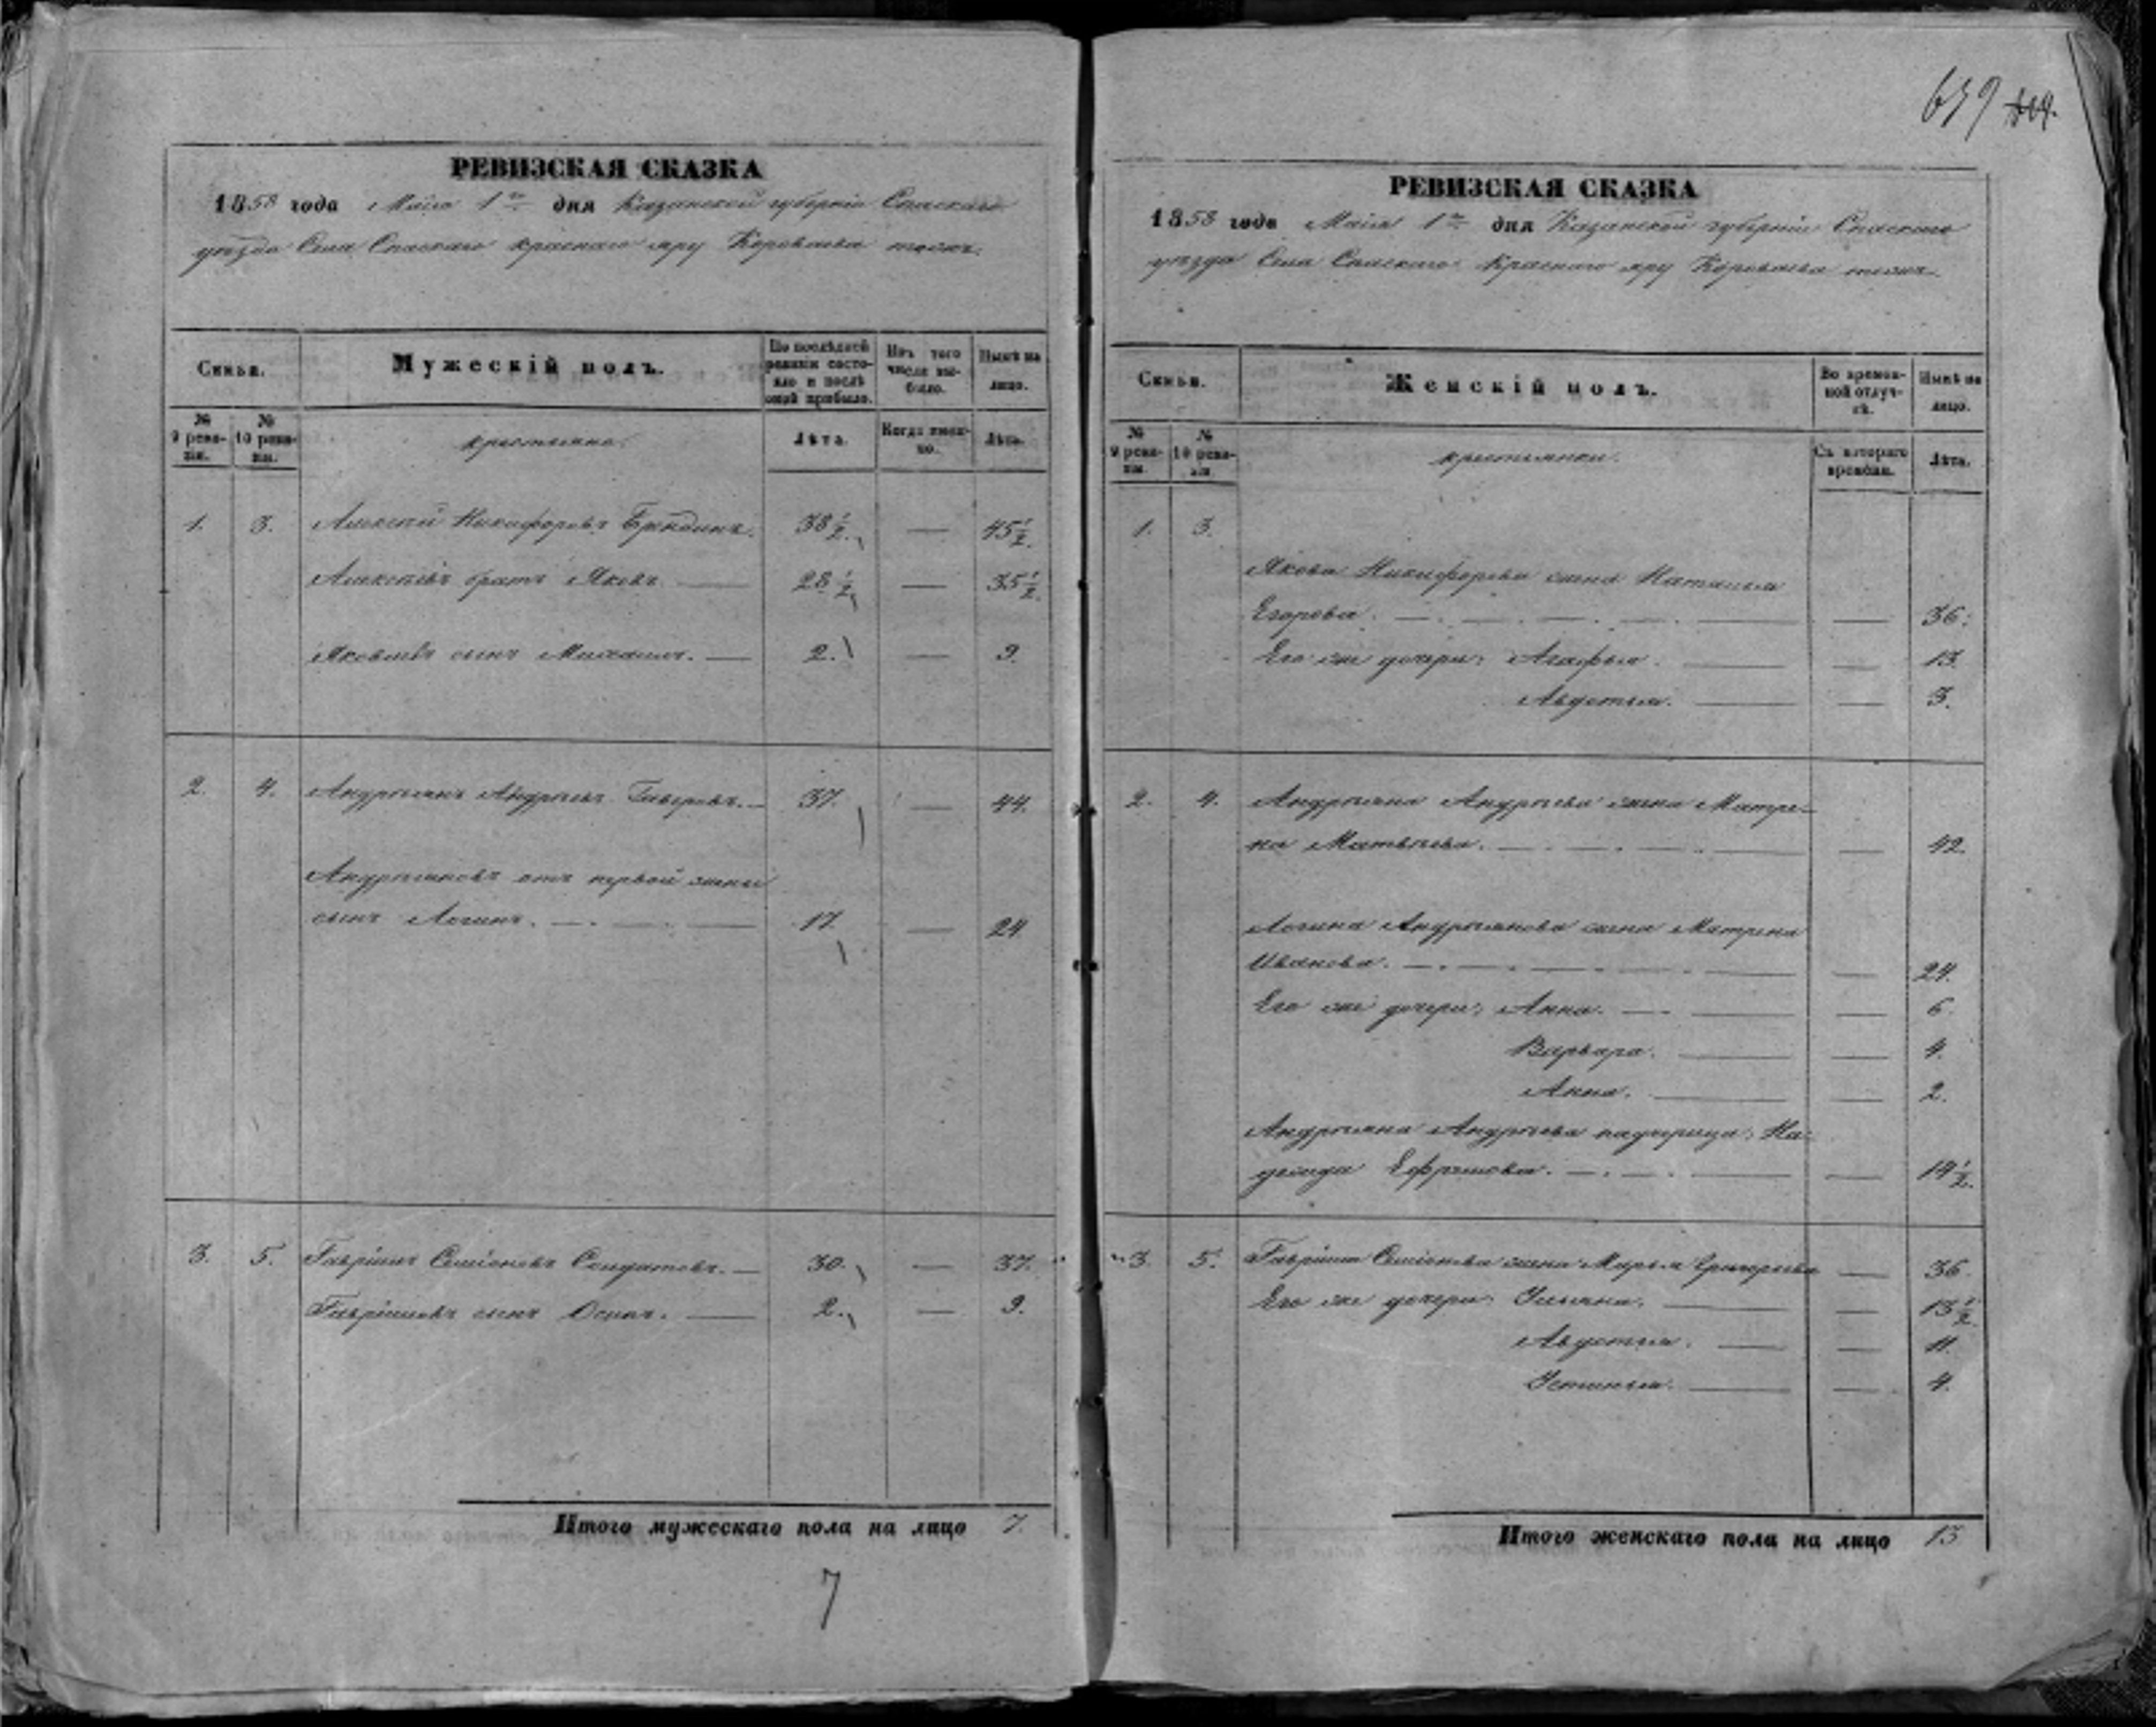 639
РЕВИЗСКАЯ СКАЗКА
1858 года Майя 1го дня Казанской губерніи Спаскаго
уѣзда Села Спаскаго краснаго яру Короваева тожъ.
Семьи.
Мужескій полъ.
По послѣдней ревизіи состояло и послѣ оной прибыло.
Изъ того числа выбыло.
Нынѣ на лицо.
№ 9 ревизіи.
№ 10 ревизіи.
крестьяне.
Лѣта.
Когда именно.
Лѣта.
1. 3. Алексѣй Никифоровъ 38½. — 45½.
Алексѣевъ братъ Яковъ — 28½ — 35½.
Яковлевъ сынъ Михаилъ. — 2. — 9.
2. 4. Андреянъ Андреевъ — 37. — 44.
Андреяновъ отъ первой жены
сынъ Логинъ. — 17. — 24.
3. 5. Гаврілъ Семіоновъ Солдатовъ. — 30. — 37.
Гавріловъ сынъ Осипъ. — 2. — 9.
Итого мужескаго пола на лицо 7.
7
РЕВИЗСКАЯ СКАЗКА
1858 года Майя 1го дня Казанской губерніи Спаскаго
уѣзда Села Спаскаго Краснаго яру Короваева тожъ.
Семьи.
Женскій полъ.
Во временной отлучкѣ.
Нынѣ на лицо.
№ 9 ревизіи.
№ 10 ревизіи.
крестьянки.
Съ котораго времени.
Лѣта.
1. 3.
Якова Никифорова жена Наталья
Егорова. — — 36.
Его же дочери: Агафья. — — 13.
Авдотья. — — 3.
2. 4. Андреяна Андреева жена Матре-
на Матвѣева. — — 42.
Логина Андреянова жена Матрена
Иванова. — — 24.
Его же дочери: Анна. — — 6.
Варвара. — — 4.
Анна. — — 2.
Андреяна Андреева падчерица: На-
дежда Ефремова. — — 14½.
3. 5. Гавріла Семіонова жена Марья Григорьева — 36.
Его же дочери: Ульяна. — — 13½.
Авдотья. — — 11.
Устинья. — — 4.
Итого женскаго пола на лицо 13